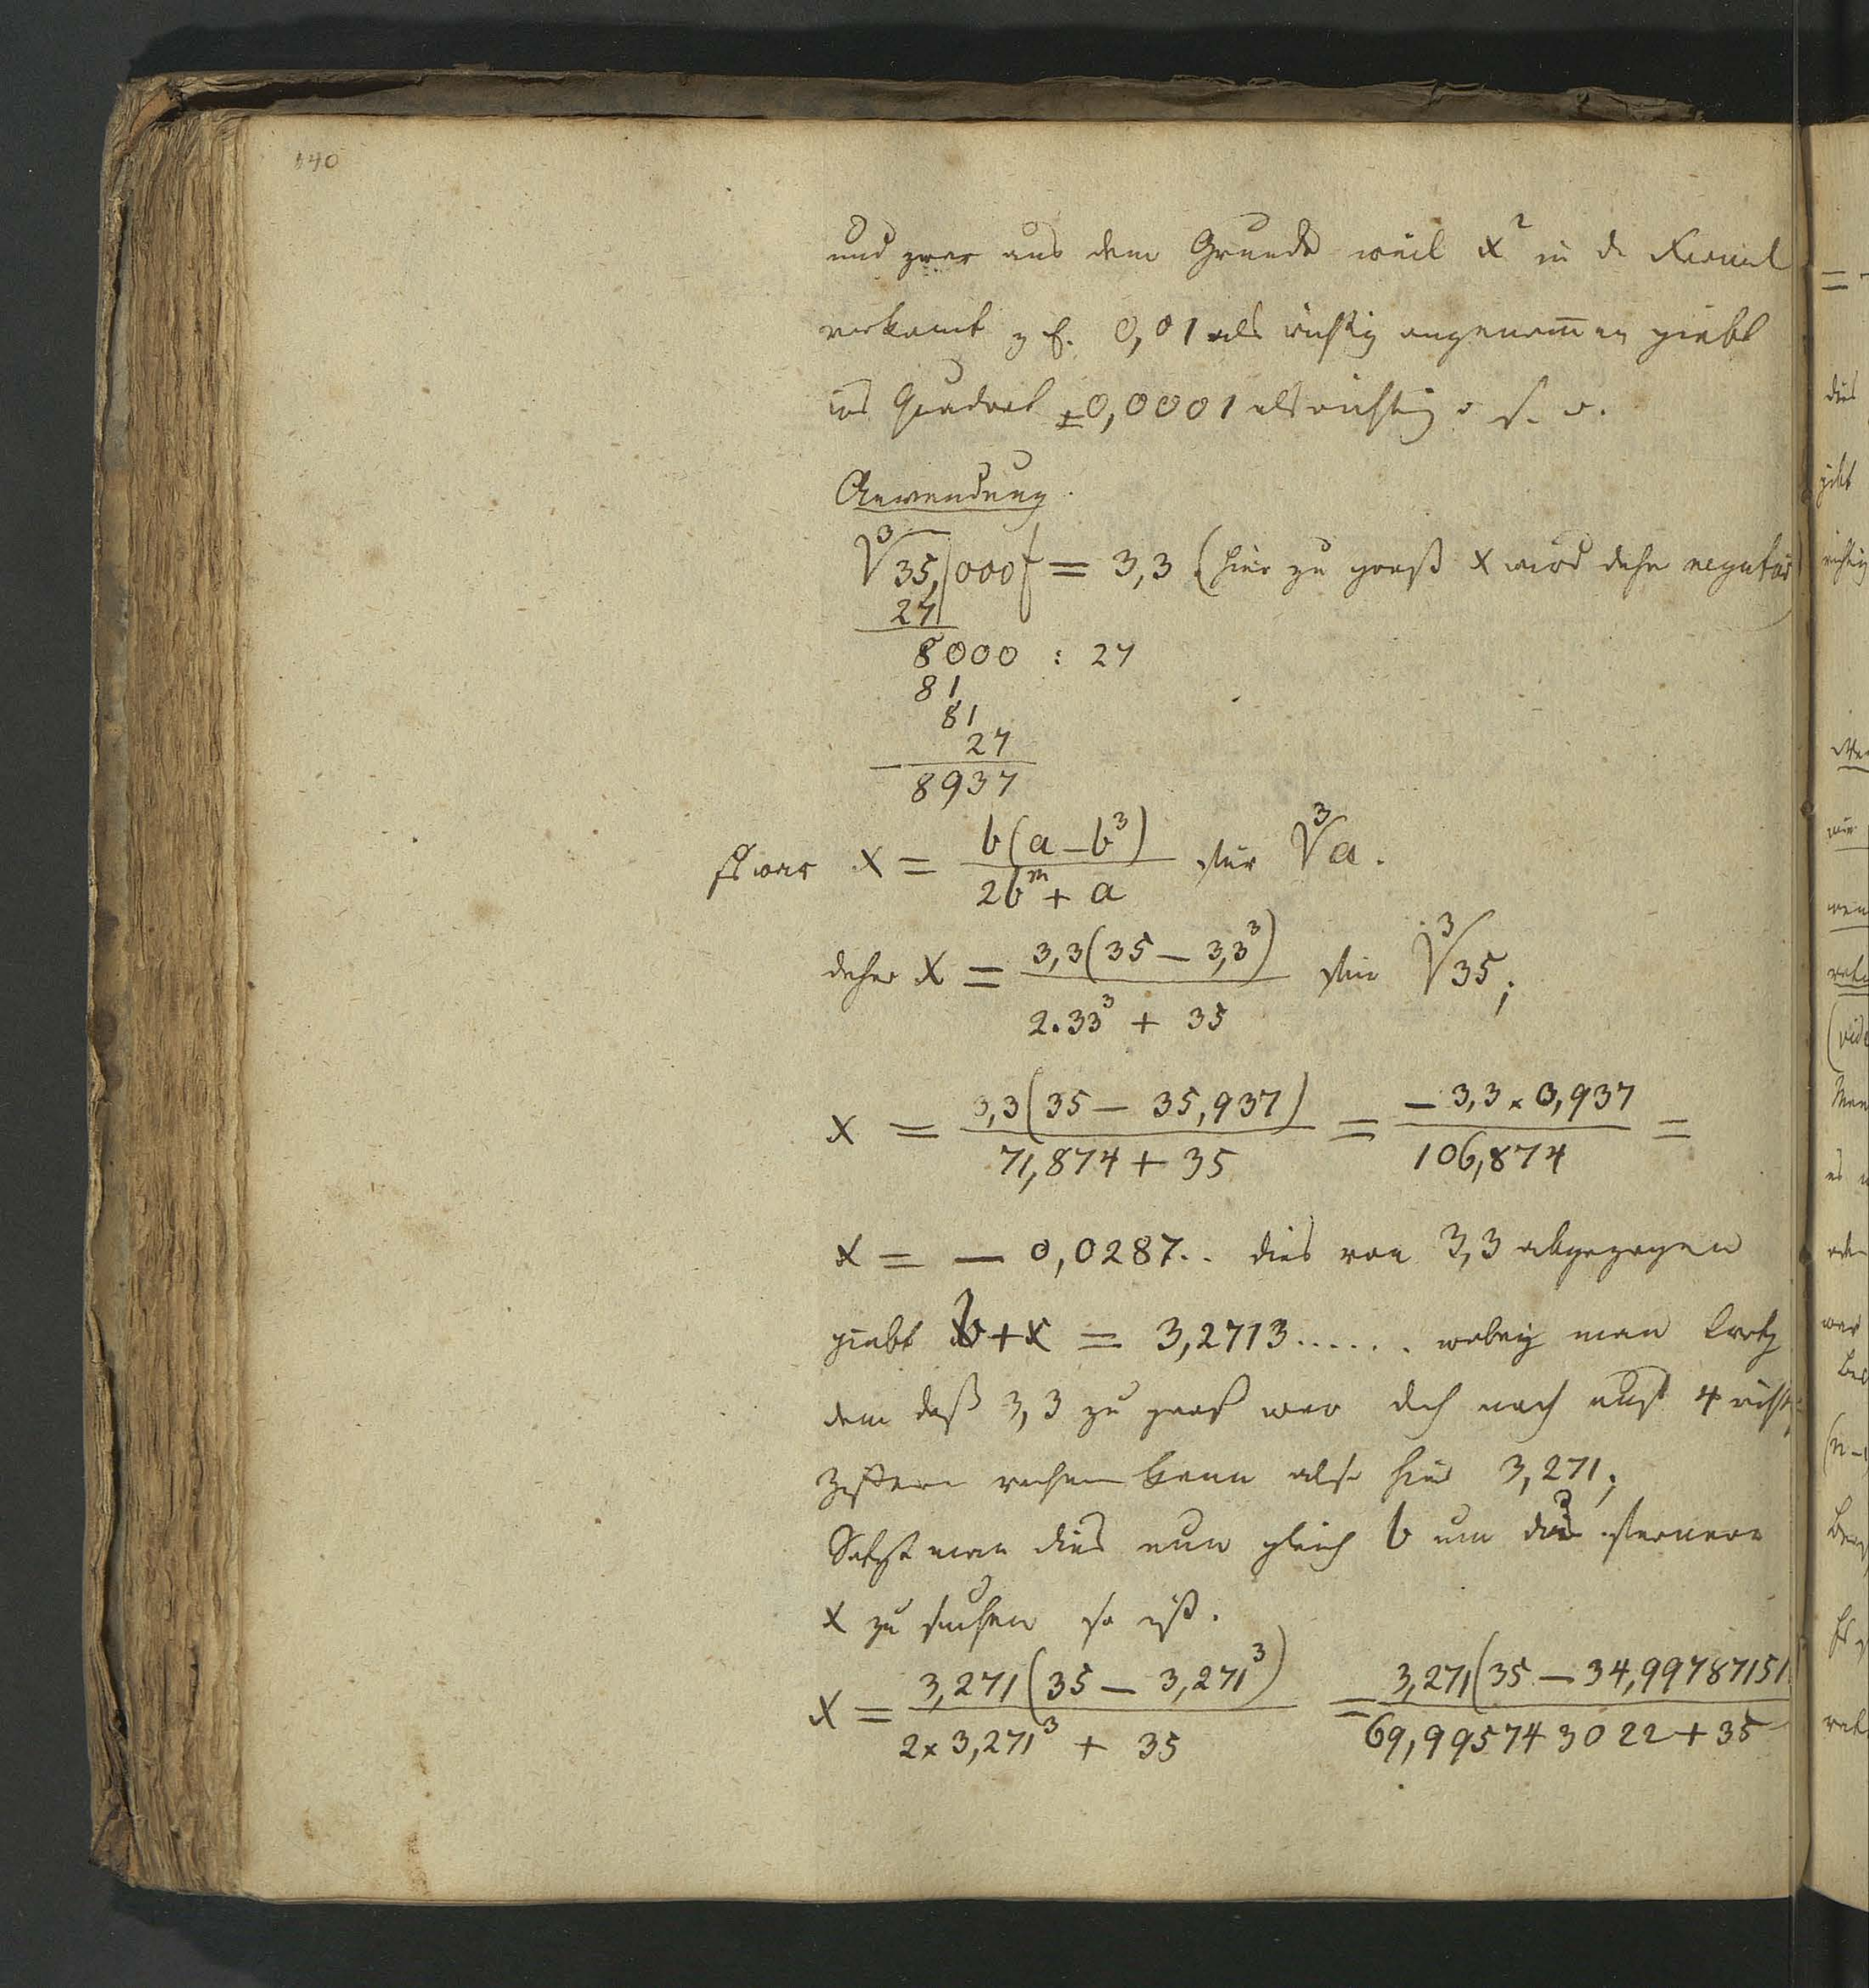 140
und zwar aus dem Grunde weil x² in d. Formel
vorkomt z E. 0,01 als richtig angenom̅en giebt
ins Quadrat ±0,0001 als richtig u. s. w.
Anwendung.
∛35,|000 = 3,3 (hier zu groß x wird daher negativ)
27
8000 : 27
81
81
27
8937
Es war x = b(a − b³) / 2b^m + a für ∛a.
daher x = 3,3(35 − 3,3³) / 2.33³ + 35 für ∛35;
x = 3,3(35 − 35,937) / 71,874 + 35 = − 3,3 × 0,937 / 106,874 =
x = − 0,0287.. dies von 3,3 abgezogen
giebt b + x = 3,2713...... wobey man trotz
dem daß 3,3 zu groß war doch noch auf 4 richt
Ziffern rechnen kann also hier 3,271;
Setzt man dies nun gleich b um das fernere
x zu suchen so ist.
x = 3,271(35 − 3,271³) / 2 × 3,271³ + 35 = 3,271(35 − 34,99787151 / 69,995743022 + 35
=
dies
giebt
richtig